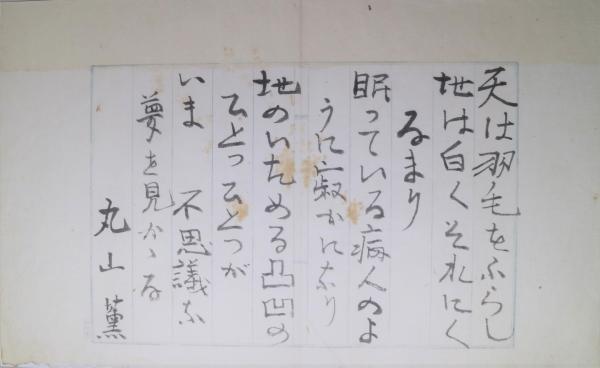 天は羽毛をふらし
地は白くそれにく
るまり
眠っている病人のよ
うに寂かになり
地のいためる凸凹の
ひとつひとつが
いま　不思議な
夢を見かゝる
丸山薫